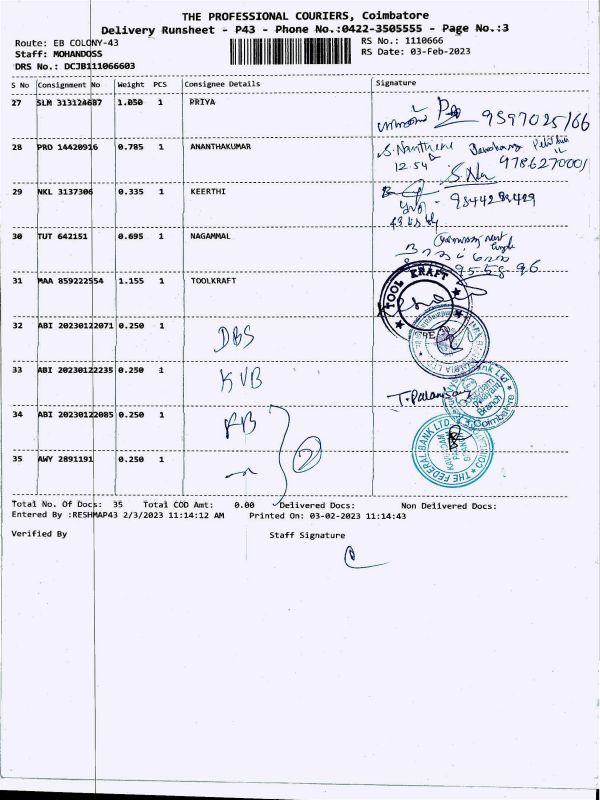 THE PROFESSIONAL COURIERS, Coimbatore
Delivery Runsheet - P43 - Phone No.:0422-3505555 - Page No.:3
Route: EB COLONY-43 RS No.: 1110666
Staff: MOHANDOSS RS Date: 03-Feb-2023
DRS No.: DCJB111066603
S No Consignment No Weight PCS Consignee Details Signature
27 SLM 313124687 1.050 1 PRIYA
9597025166
28 PRO 14420916 0.785 1 ANANTHAKUMAR
12.54 9786270001
29 NKL 3137306 0.335 1 KEERTHI
30 TUT 642151 0.695 1 NAGAMMAL
31 MAA 859222554 1.155 1 TOOLKRAFT
TOOL KRAFT
32 ABI 20230122071 0.250 1 DBS
33 ABI 20230122235 0.250 1 KVB
34 ABI 20230122085 0.250 1 FB
35 AWY 2891191 0.250 1 2
THE FEDERAL BANK LTD
Total No. Of Docs: 35 Total COD Amt: 0.00 Delivered Docs: Non Delivered Docs:
Entered By :RESHMAP43 2/3/2023 11:14:12 AM Printed On: 03-02-2023 11:14:43
Verified By Staff Signature